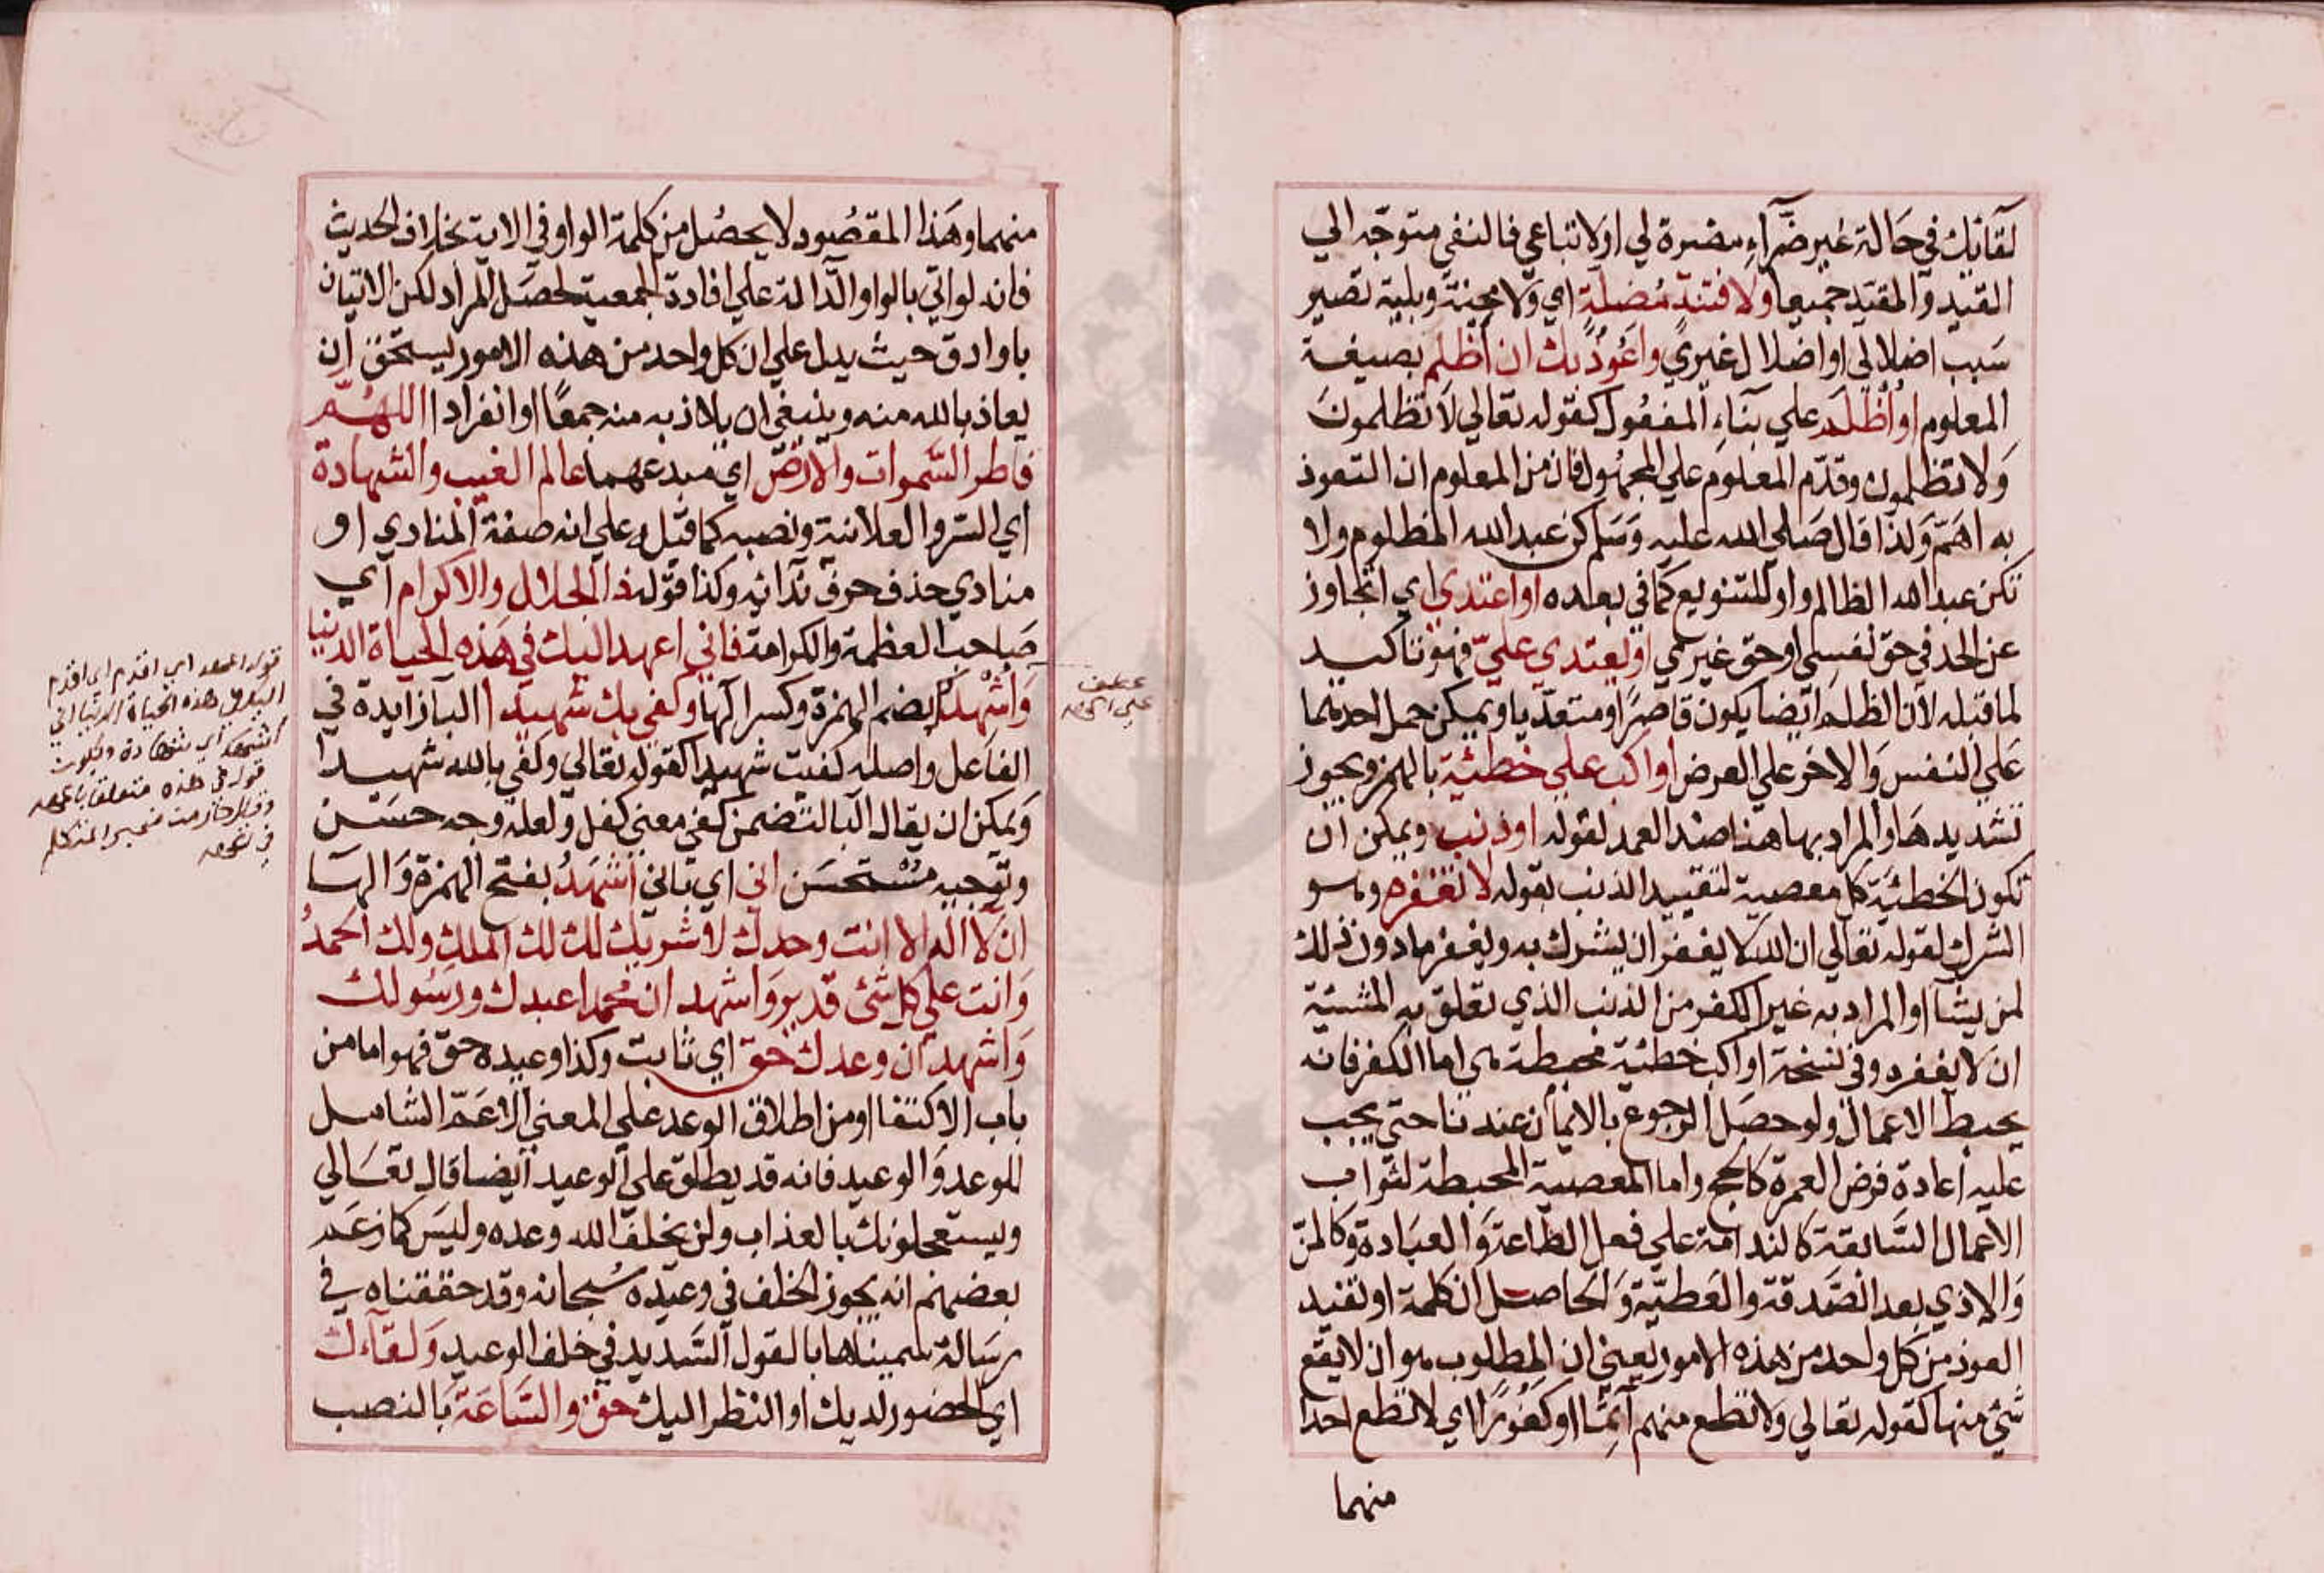 لقائك في حالة غير ضرآء مضرة لي او لاتباعي فالنفي متوجه الي
القيد والمقيد جميعا ولا فتنة مضلة اي ولا محنة وبلية تصير
سبب اضلالي او اضلال غيري واعوذ بك ان أظلم بصيغة
المعلوم او أُظلَم علي بنآء المفعول كقوله تعالي لا تظلمون
ولا تظلمون وقدم المعلوم علي المجهول فان من المعلوم ان التعوذ
به اهم ولذا قال صلي الله عليه وسلم كن عبد الله المظلوم ولا
تكن عبد الله الظالم واو للتنويع كما في بعده او اعتدي اي اتجاوز
عن الحد في حق نفسي او حق غيري او يعتدي علي فهو تاكيد
لما قبله لان الظلم ايضا يكون قاصرا ومتعديا ويمكن حمل احدهما
علي النفس والاخر علي العرض او اكسب علي خطئية بالهمز ويجوز
تشديدها والمراد بها هنا ضد العمد لقوله او ذنب ويمكن ان
تكون الخطئية كل معصية لتقييد الذنب بقوله لا تغفره وهو
الشرك لقوله تعالي ان الله لا يغفر ان يشرك به ويغفر ما دون ذلك
لمن يشآ او المراد به غير الكفر من الذنب الذي تعلق به المشيئة
ان لا يغفره وفي نسخة او اكسب خطئية محبطة اما الكفر فانه
يحبط الاعمال ولو حصل الرجوع بالايمان عندنا حتي يجب
عليه اعادة فرض العمرة كالحج واما المعصية المحبطة لثواب
الاعمال السابقة كالندامة علي فعل الطاعة والعبادة وكالمن
والاذي بعد الصدقة والعطية والحاصل ان كلمة او تفيد
العوذ من كل واحد من هذه الامور يعني ان المطلوب هو ان لا يقع
شئ منها كقوله تعالي ولا تطع منهم آثما او كفورا اي لا تطع احدا
منهما
منهما وهذا المقصود لا يحصل من كلمة الواو في الاية بخلاف الحديث
فانه لو اتي بالواو الدالة علي افادة الجمعية لحصل المراد لكن الاتيان
باو ادق حيث يدل علي ان كل واحد من هذه الامور يستحق ان
يعاذ بالله منه وينبغي ان يلاذ به منه جمعا او انفرادا اللهم
فاطر السموات والارض اي مبدعهما عالم الغيب والشهادة
اي السر والعلانية ونصبه كما قبله علي انه صفة المنادي او
منادي حذف حرف ندائه وكذا قوله ذا الجلال والاكرام اي
صاحب العظمة والكرامة فاني اعهد اليك في هذه الحياة الدنيا
واشهدك بضم الهمزة وكسر الهآ وكفي بك شهيدا البا زايدة في
الفاعل واصله كفيت شهيدا كقوله تعالي وكفي بالله شهيدا
ويمكن ان يقال البا لتضمن كفي معني كفل ولعله وجه حسن
وتوجيه مستحسن اني اي باني أشهد بفتح الهمزة والهآ
ان لا اله الا انت وحدك لا شريك لك لك الملك ولك الحمد
وانت علي كل شئ قدير واشهد ان محمدا عبدك ورسولك
واشهد ان وعدك حق اي ثابت وكذا وعيده حق فهو اما من
باب الاكتفا او من اطلاق الوعد علي المعني الاعم الشامل
للوعد والوعيد فانه قد يطلق علي الوعيد ايضا قال تعالي
ويستعجلونك بالعذاب ولن يخلف الله وعده وليس كما زعم
بعضهم انه يجوز الخلف في وعيده سبحانه وقد حققناه في
رسالة سميناها بالقول السديد في خلف الوعيد ولقآءك
اي الحضور لديك او النظر اليك حق والساعة بالنصب
عطف
قوله اعهد اي اقدم
اليك في هذه الحياة الدنيا اني
قوله في هذه متعلق باعهد